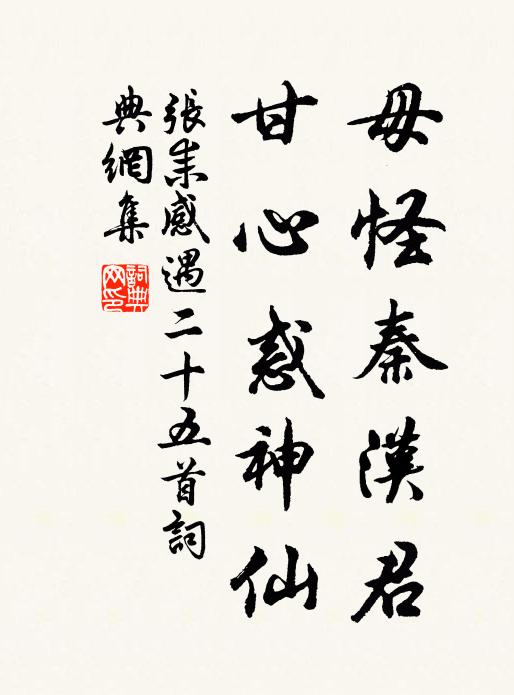 毋怪秦漢君
甘心惑神仙
張耒感遇二十五首詞
典網集
詞典网印